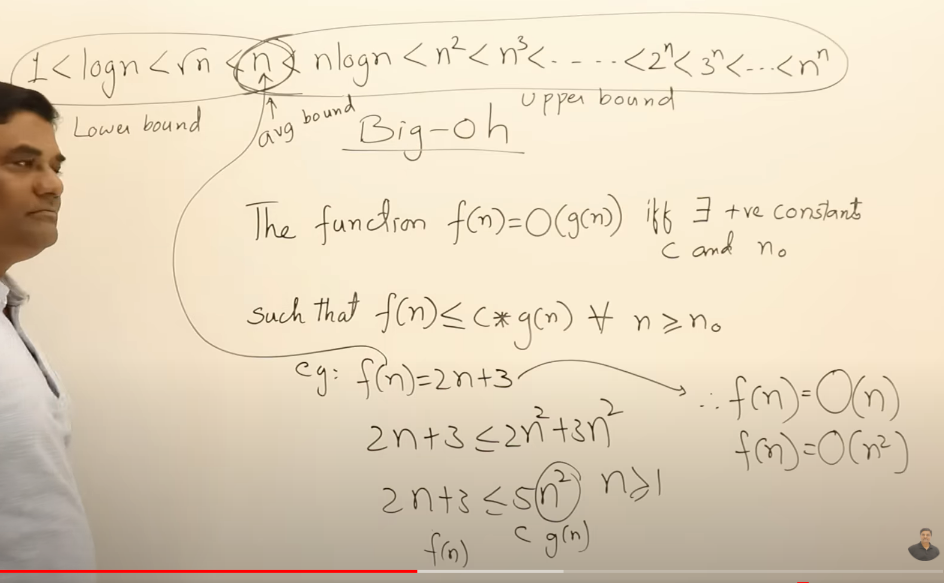 1 < logn < √n < n < nlogn < n² < n³ < - - - - - < 2ⁿ < 3ⁿ < ... < nⁿ
Lower bound
avg bound
Upper bound
Big-oh
The function f(n)=O(g(n)) iff ∃ +ve constants
c and n₀
such that f(n) ≤ c*g(n) ∀ n ≥ n₀
eg: f(n)=2n+3
2n+3 ≤ 2n²+3n²
2n+3 ≤ 5n² n≥1
f(n) c g(n)
∴ f(n)=O(n)
f(n)=O(n²)